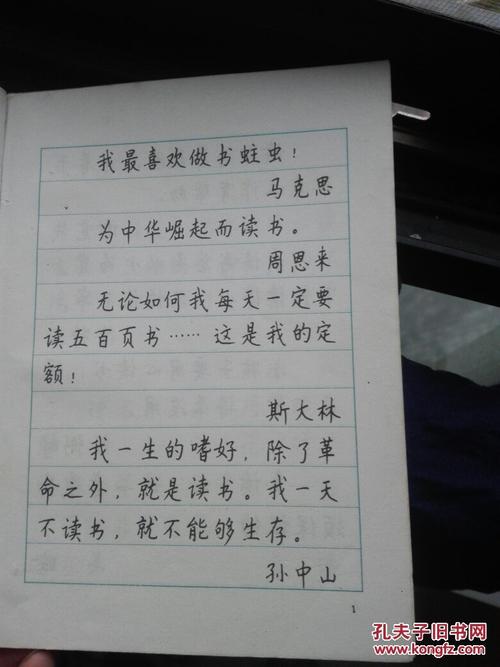 我最喜欢做书蛀虫！
马克思
为中华崛起而读书。
周恩来
无论如何我每天一定要
读五百页书……这是我的定
额！
斯大林
我一生的嗜好，除了革
命之外，就是读书。我一天
不读书，就不能够生存。
孙中山
1
孔夫子旧书网
www.kongfz.com